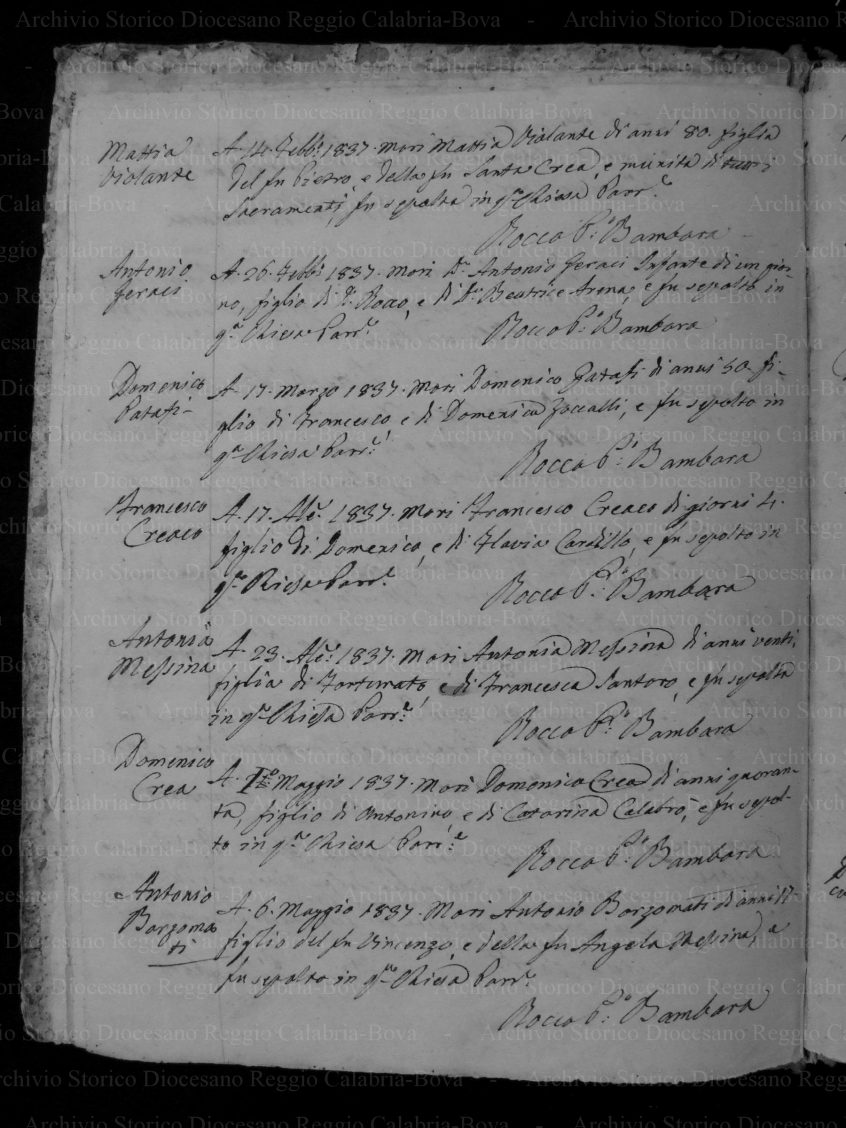 Mattia
Violante
A. 14. Febb.º 1837. Morì Mattia Violante di anni 80. figlia
del fu Pietro, e della fu Santa Crea, e munita di tutti i
Sacramenti, fu sepolta in q.ª Chiesa Parr.ª
Rocco P.º Bambara
Antonio
Geraci
A. 26. Febb.º 1837. Morì D. Antonio Geraci Infante di un gior-
no, figlio di D. Rocco, e di D.ª Beatrice Arena, e fu sepolto in
q.ª Chiesa Parr.ª
Rocco P.º Bambara
Domenico
Patafi
A. 17. Marzo 1837. Morì Domenico Patafi di anni 50. fi-
glio di Francesco e di Domenica Zoccalli, e fu sepolto in
q.ª Chiesa Parr.ª
Rocco P.º Bambara
Francesco
Creaco
A. 17. Ale. 1837. Morì Francesco Creaco di giorni 4.
figlio di Domenico, e di Flavia Cardillo, e fu sepolto in
q.ª Chiesa Parr.ª
Rocco P.º Bambara
Antonia
Messina
A. 23. Ale. 1837. Morì Antonia Messina di anni venti,
figlia di Fortunato, e di Francesca Santoro, e fu sepolta
in q.ª Chiesa Parr.ª
Rocco P.º Bambara
Domenico
Crea
A. 1º Maggio 1837. Morì Domenico Crea di anni quaran-
ta, figlio di Antonino e di Catarina Calabrò, e fu sepol-
to in q.ª Chiesa Parr.ª
Rocco P.º Bambara
Antonio
Borgoma
ti
A. 6. Maggio 1837. Morì Antonio Borgomati di anni 17
figlio del fu Vincenzo, e della fu Angela Messina, e
fu sepolto in q.ª Chiesa Parr.ª
Rocco P.º Bambara
Archivio Storico Diocesano Reggio Calabria-Bova